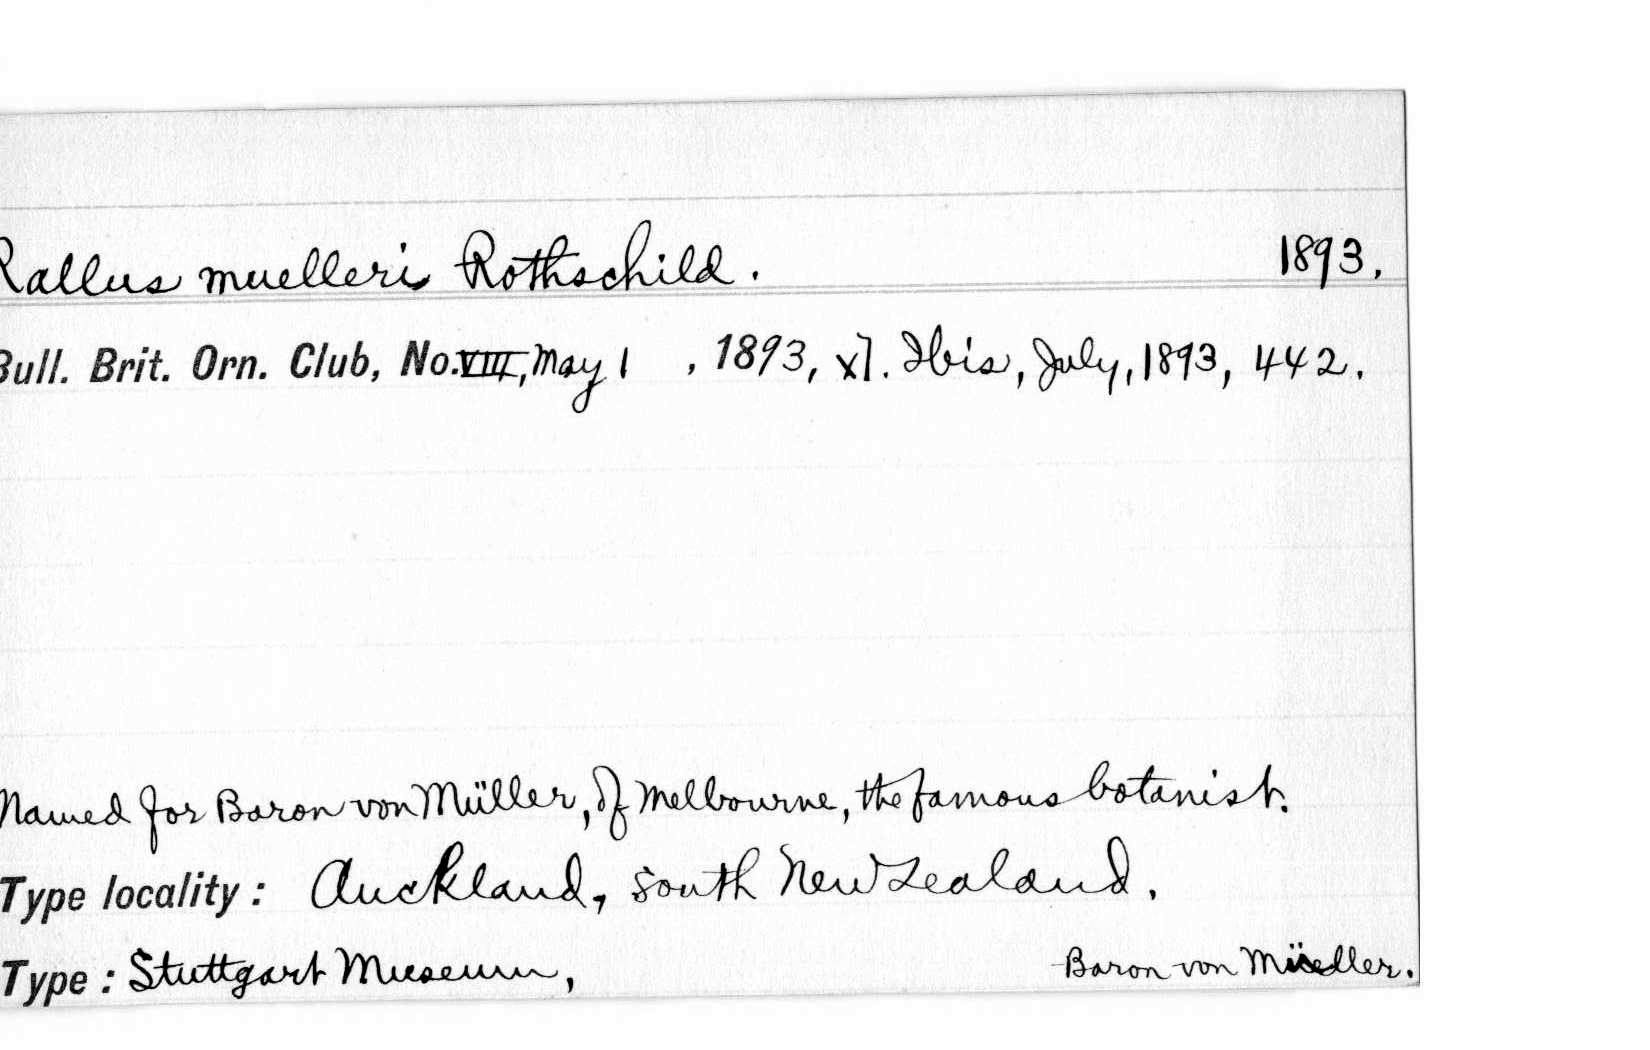 Rallus muelleri Rothschild. 1893.
Bull. Brit. Orn. Club, No. VIII, May 1 , 1893, xl. Ibis, July, 1893, 442.
Named for Baron von Müller, of Melbourne, the famous botanist.
Type locality: Auckland, South New Zealand.
Type: Stuttgart Museum, Baron von Müeller.